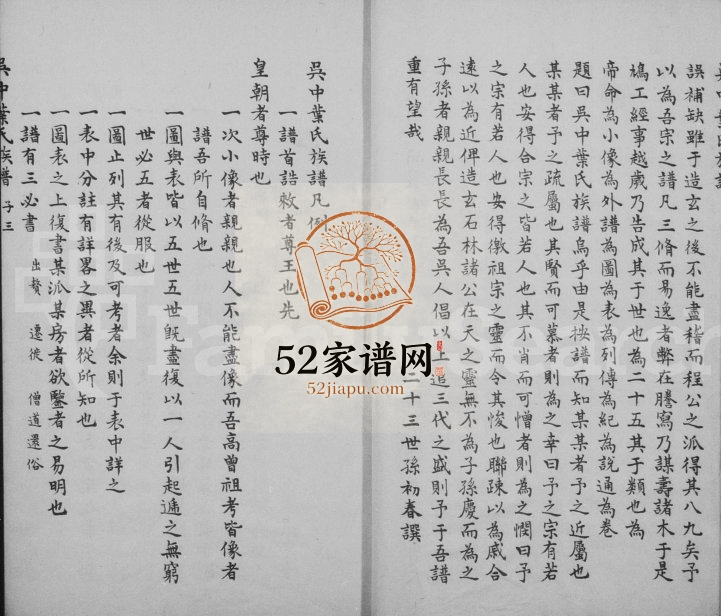 誤補缺雖于造玄之後不能盡稽而程公之派得其八九矣予
以為吾宗之譜凡三脩而易逸者弊在謄寫乃謀壽諸木于是
鳩工經事越歲乃告成其于世也為二十五其于類也為
帝命為小像為外譜為圖為表為列傳為紀為說通為卷
題曰吳中葉氏族譜烏乎由是按譜而知某某者予之近屬也
某某者予之疏屬也其賢而可慕者則為之幸曰予之宗有若
人也安得合宗之皆若人也其不肖而可憎者則為之憫曰予
之宗有若人也安得徼祖宗之靈而令其悛也聯疎以為戚合
遠以為近俾造玄石林諸公在天之靈無不為子孫慶而為之
子孫者親親長長為吾吳人倡以上追三代之盛則予于吾譜
重有望哉
二十三世孫初春譔
吳中葉氏族譜凡例
一譜首誥敕者尊王也先
皇朝者尊時也
一次小像者親親也人不能盡像而吾高曾祖考皆像者
譜吾所自脩也
一圖與表皆以五世五世既盡復以一人引起遞之無窮
世必五者從服也
一圖止列其有後及可考者余則于表中詳之
一表中分註有詳畧之異者從所知也
一圖表之上復書某派某房者欲鑒者之易明也
一譜有三必書 出贅 遷徙 僧道還俗
吳中葉氏族譜 子三
52家谱网
52jiapu.com